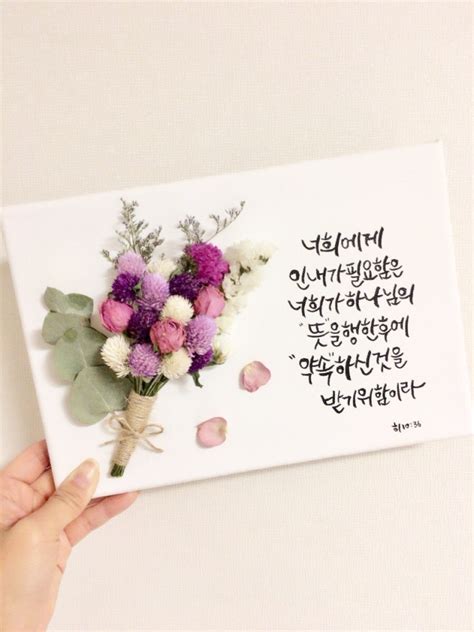 너희에게
인내가 필요함은
너희가 하나님의
"뜻"을 행한후에
"약속"하신것을
받기위함이라
히10:36